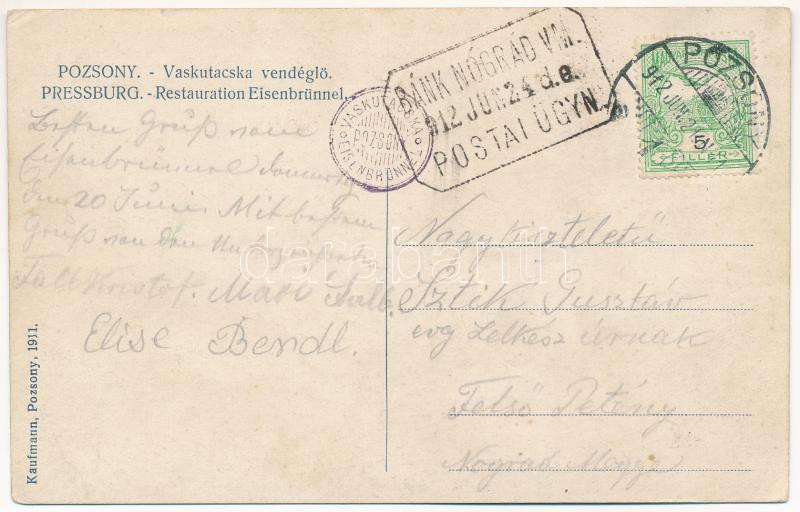 POZSONY. - Vaskutacska vendéglő.
PRESSBURG. - Restauration Eisenbrünnel.
VASKUTACSKA
POZSONY
EISENBRÜNNEL
BÁNK NÓGRÁD V.M.
912 JUN 24 d.e.
POSTAI ÜGYN.
POZSONY
912 JUN
5
FILLÉR
Besten Gruß vom
Eisenbrünnel
den 20 Juni Mit bestem
Gruß von den
Falb Kristof. Falb
Elise Bendl.
Nagytiszteletü
Sztik Gusztáv
evg Lelkész úrnak
Felső Petény
Nógrád Megye
Kaufmann, Pozsony, 1911.
darabanth